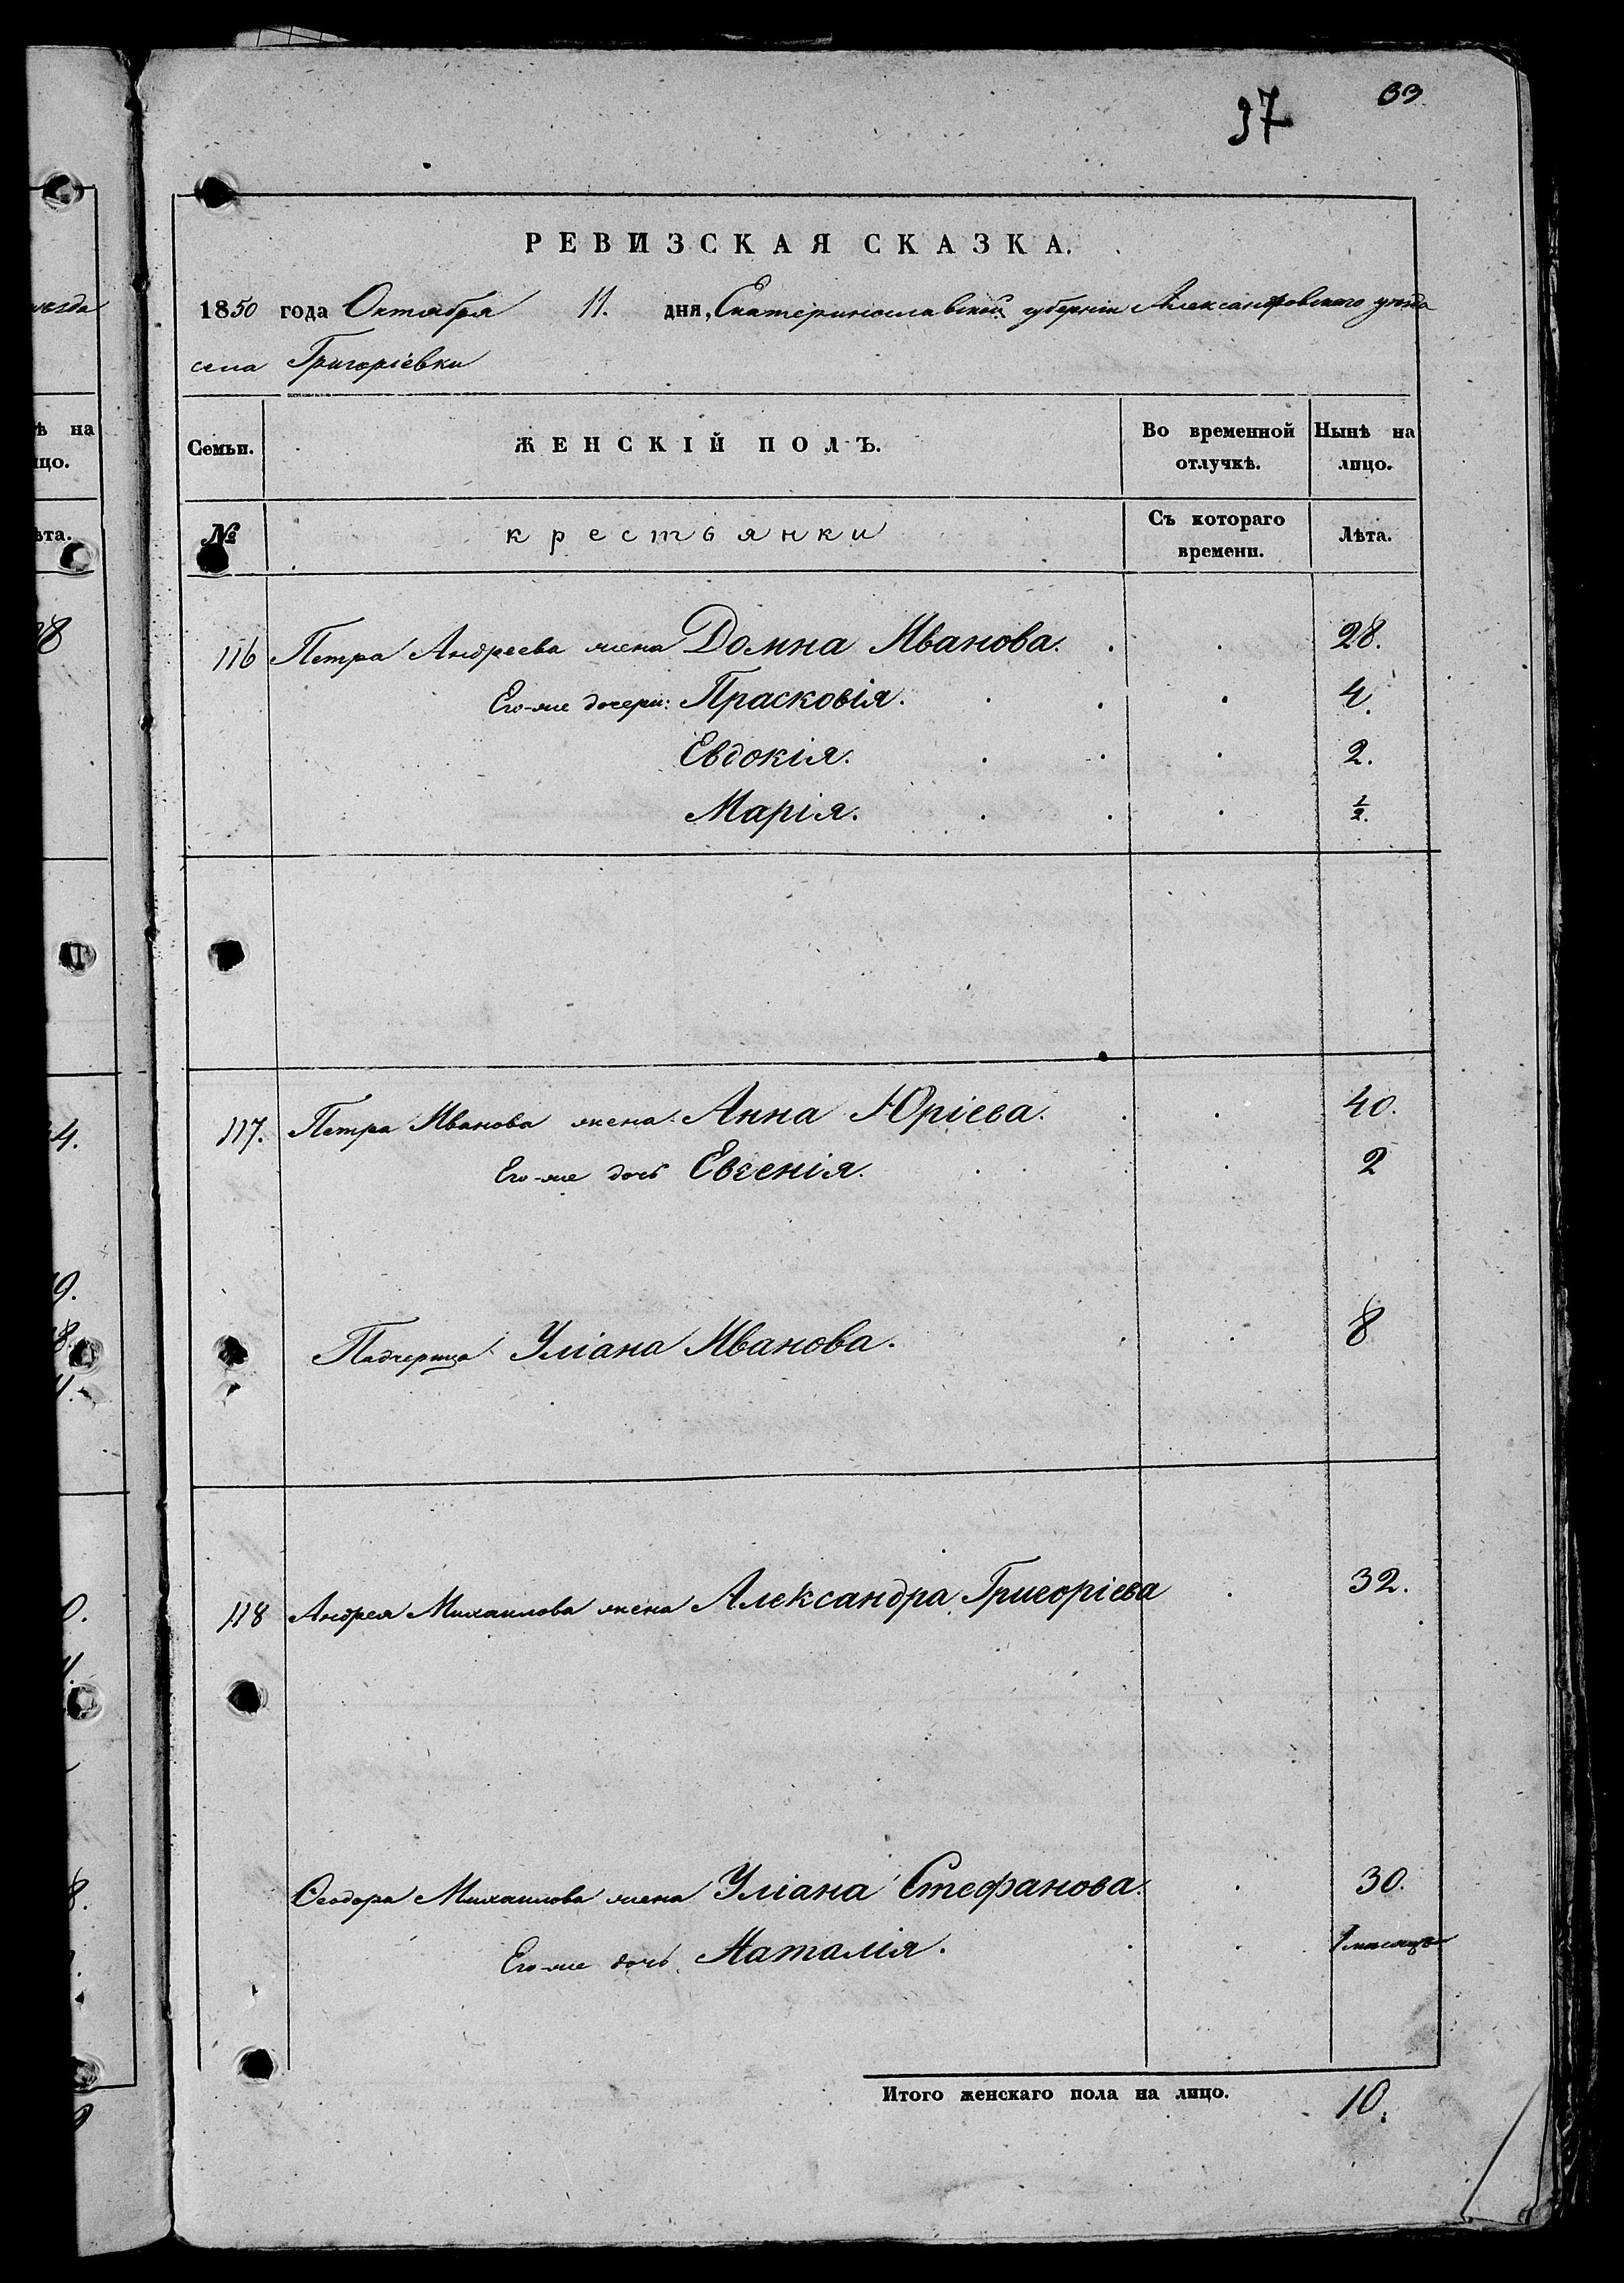 37
РЕВИЗСКАЯ СКАЗКА.
1850 года Октября 11. дня, Екатеринославской губернии Александровского уезда
села Григоріевки
Семьи. ЖЕНСКІЙ ПОЛЪ. Во временной отлучкѣ. Нынѣ на лицо.
№ крестьянки Съ котораго времени. Лѣта.
116 Петра Андреева жена Домна Иванова. 28.
Его-же дочери: Прасковія. 4.
Евдокія. 2.
Марія. ½.
117. Петра Иванова жена: Анна Юріева. 40.
Его-же дочь Евгенія. 2
Падчерица Уліана Иванова. 8
118 Андрея Михаилова жена Александра Григоріева 32.
Ѳеодора Михаилова жена Уліана Стефанова. 30.
Его-же дочь Наталія. 1 месяцъ
Итого женскаго пола на лицо. 10.
ѣ на
цо.
ѣта.